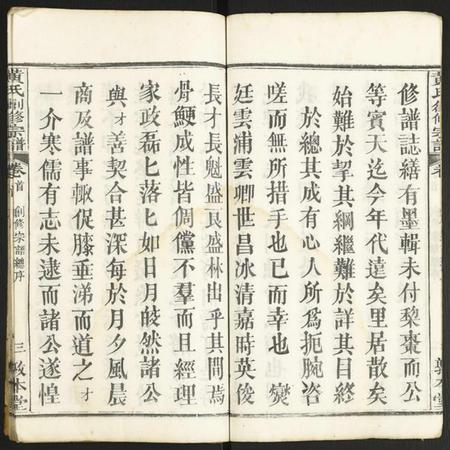 黃氏創修宗譜
卷首
修譜誌繕有墨輯未付棃棗而公
等賓天迄今年代遠矣里居散矣
始難於挈其綱繼難於詳其目終
於總其成有心人所為扼腕咨
嗟而無所措手也已而幸也爕
廷雲浦雲卿世昌冰清嘉時英俊
長才長魁盛艮盛林出乎其間焉
骨鯁成性皆倜儻不羣而且經理
家政磊匕落匕如日月皎然諸公
與才善契合甚深每於月夕風晨
商及譜事輙促膝垂涕而道之才
一介寒儒有志未逮而諸公遂惶
黃氏創修宗譜
卷首
創修宗譜總序
三
敦本堂